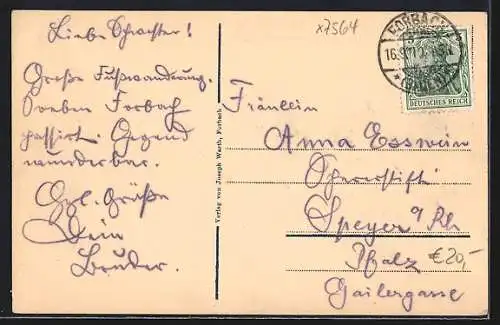 x7564
Liebe Schwester!
Große Fußwanderung.
Soeben Forbach
passirt. Gegend
wunderbar.
Hzl. Grüße
Dein
Bruder.
Verlag von Joseph Warth, Forbach.
FORBACH
16.9.11
DEUTSCHES REICH
Fräulein
Anna Esswein
Speyer a/Rh
Pfalz €20,-
Gailergasse